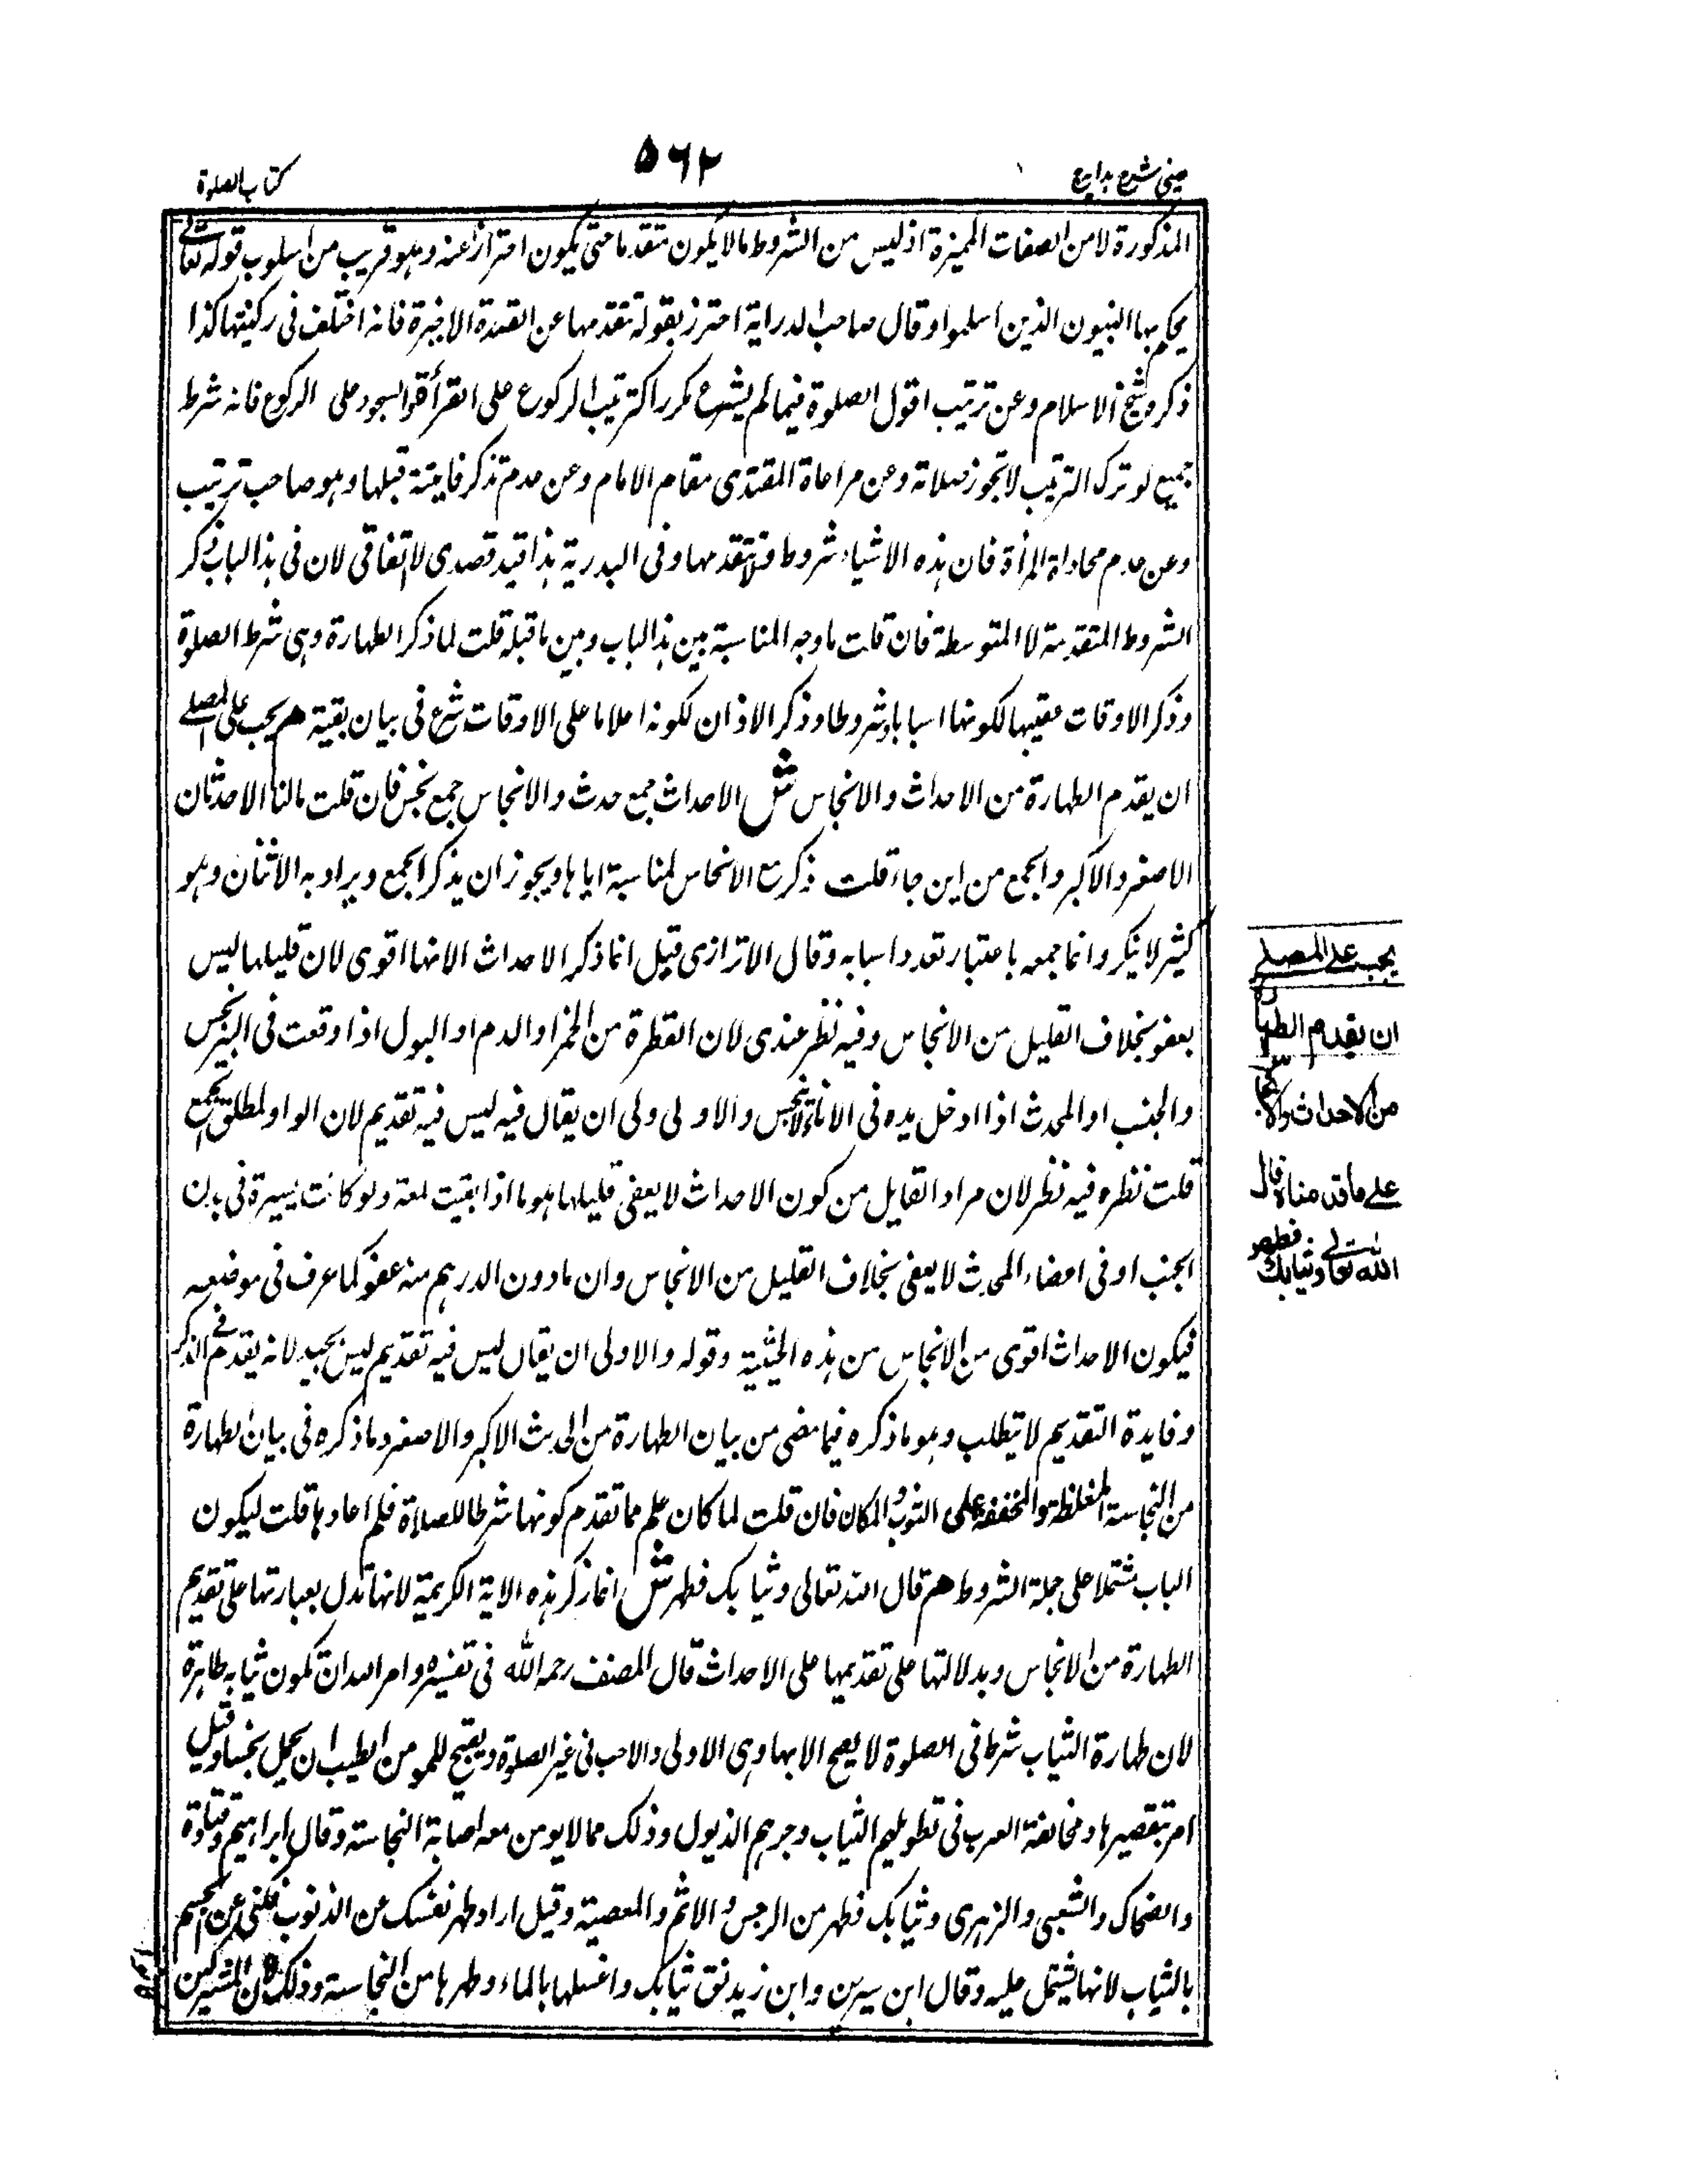 عینی شرح ہدایہ
۵۶۲
کتاب الصلوة
المذکورة لا من الصفات الممیزة اذ لیس من الشروط مالا یکون متقدما حتی یکون احترازا عنه وہو قریب من اسلوب قوله تعالی
یحکم بہا النبیون الذین اسلموا وقال صاحب الدرایة احترز بقوله تتقدمہا عن القعدة الاخیرة فانه اختلف فی رکنیتہا کذا
ذکره شیخ الاسلام وعن ترتیب افول الصلوة فیما لم یشرع مکررا کترتیب الرکوع علی القرأة والسجود علی الرکوع فانه شرط
جمیع لو ترک الترتیب لا تجوز صلاته وعن مراعاة المقتدی مقام الامام وعن عدم تذکر فایتة قبلہا وہو صاحب ترتیب
وعن عدم محاذاة المرأة فان ہذه الاشیاء شروط ولا تتقدمہا وفی البدریة ہذا قید قصدی لا اتفاقی لان فی ہذا الباب ذکر
الشروط المتقدمة لا المتوسطة فان قلت ما وجه المناسبة بین ہذا الباب وبین ما قبله قلت لما ذکر الطہارة وہی شرط الصلوة
وذکر الاوقات عقیبہا لکونہا اسبابا وشروطا وذکر الاذان لکونه اعلاما علی الاوقات شرع فی بیان بقیة هم یجب علی المصلے
ان یقدم الطہارة من الاحداث والانجاس ش الاحداث جمع حدث والانجاس جمع نجس فان قلت مالنا الا حدثان
الاصغر والاکبر والجمع من این جاء قلت ذکر مع الانجاس لمناسبة ایاہا ویجوز ان یذکر الجمع ویراد به الاثنان وہو
کثیر لا ینکر وانما جمعه باعتبار تعدد اسبابه وقال الاترازی قیل انما ذکر الاحداث لانہا اقوی لان قلیلہا لیس
بعفو بخلاف القلیل من الانجاس وفیه نظر عندی لان القطرة من الخمر او الدم او البول اذا وقعت فی البیر تنجس
والجنب او المحدث اذا ادخل یده فی الاناء لا تنجس والاولی ولی ان یقال فیه لیس فیه تقدیم لان الواو لمطلق الجمع
قلت نظره فیه نظر لان مراد القایل من کون الاحداث لا یعفی قلیلہا ہو ما اذا بقیت لمعة ولو کانت یسیرة فی بدن
الجنب او فی اعضاء المحدث لا یعفی بخلاف القلیل من الانجاس وان مادون الدرہم منه عفو کما عرف فی موضعه
فیکون الاحداث اقوی من الانجاس من ہذه الحیثیة وقوله والاولی ان یقال لیس فیه تقدیم لیس بجید لانه یقدم فی الذکر
وفایدة التقدیم لا تطلب وہو ما ذکره فیما مضی من بیان الطہارة من الحدث الاکبر والاصغر وما ذکره فی بیان الطہارة
من النجاسة المغلظة والمخففة علی الثوب والمکان فان قلت لما کان علم مما تقدم کونہا شرطا للصلاة فلم اعادہا قلت لیکون
الباب مشتملا علی جملة الشروط هم قال الله تعالی وثیابک فطہر ش انما ذکر ہذه الایة الکریمة لانہا تدل بعبارتہا علی تقدیم
الطہارة من الانجاس وبدلالتہا علی تقدیمہا علی الاحداث قال المصنف رحمه الله فی تفسیره وامر الله ان تکون ثیابه طاہرة
لان طہارة الثیاب شرط فی الصلوة لا یصح الا بہا وہی الاولی والاحب فی غیر الصلوة ویقبح للمومن الطیب ان یحمل نجسا وقیل
امر بتقصیرہا ومخالفة العرب فی تطویلہم الثیاب وجرہم الذیول وذلک مما لا یومن معه اصابة النجاسة وقال ابراہیم وقتادة
والضحاک والشعبی والزہری وثیابک فطہر من الرجس والاثم والمعصیة وقیل اراد طہر نفسک عن الذنوب فکنی عن الجسم
بالثیاب لانہا تشتمل علیه وقال ابن سیرین وابن زید نق ثیابک واغسلہا بالماء وطہرہا من النجاسة وذلک ان المشرکین
یجب علے المصلے
ان یقدم الطہارة
من الاحداث والانجاس
علے ما قدمناه قال
الله تعالے وثیابک فطهر